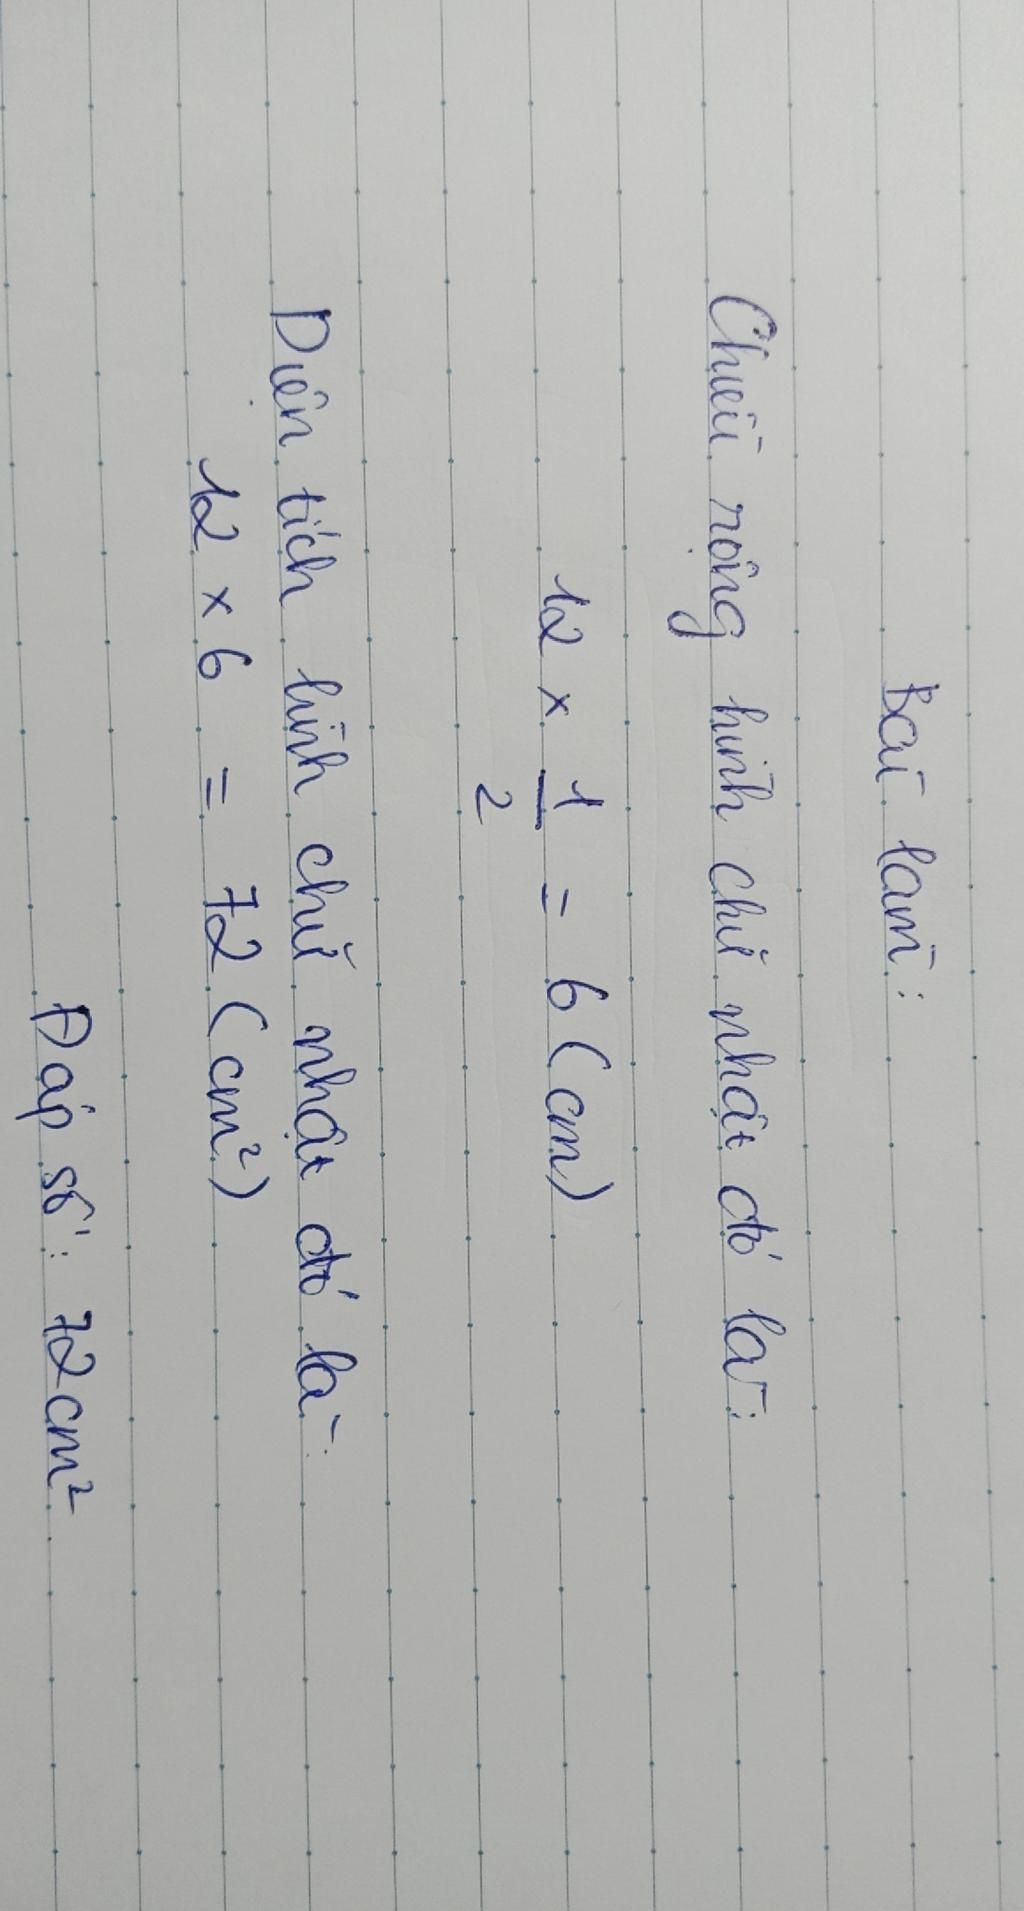 Bài làm:
Chiều rộng hình chữ nhật đó là:
12 × 1/2 = 6 (cm)
Diện tích hình chữ nhật đó là:
12 × 6 = 72 (cm²)
Đáp số: 72cm²